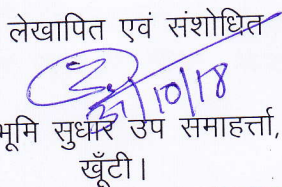 लेखापित एवं संशोधित
/10/18
भूमि सुधार उप समाहर्त्ता,
खूँटी।